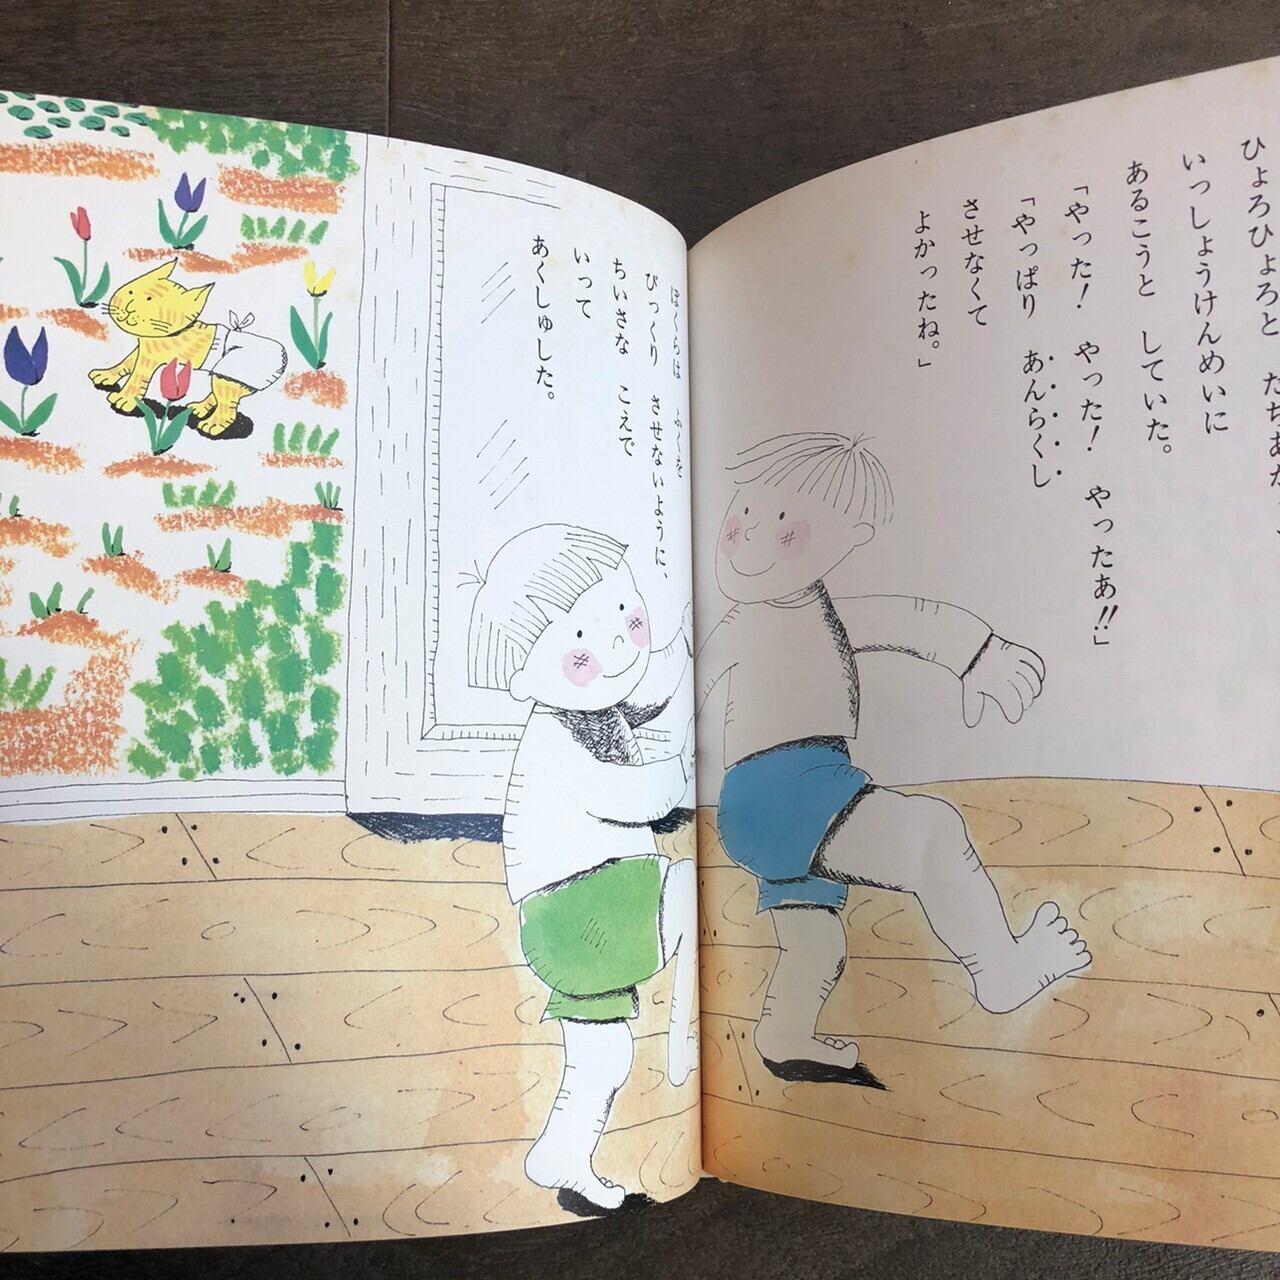 ひょろひょろと たちあが
いっしょうけんめいに
あるこうと していた。
「やった! やった! やったあ!!」
「やっぱり あんらくし
させなくて
よかったね。」
ぼくらは ふくを
びっくり させないように、
ちいさな こえで
いって
あくしゅした。